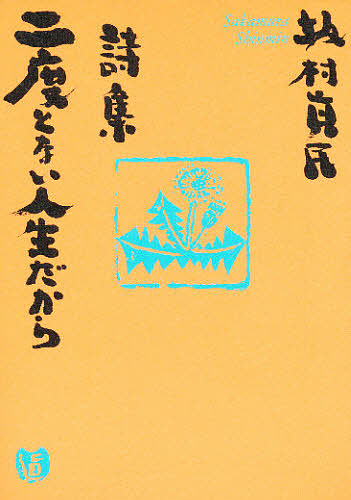 坂村真民
Sakamura
Shinmin
詩集
二度とない人生だから